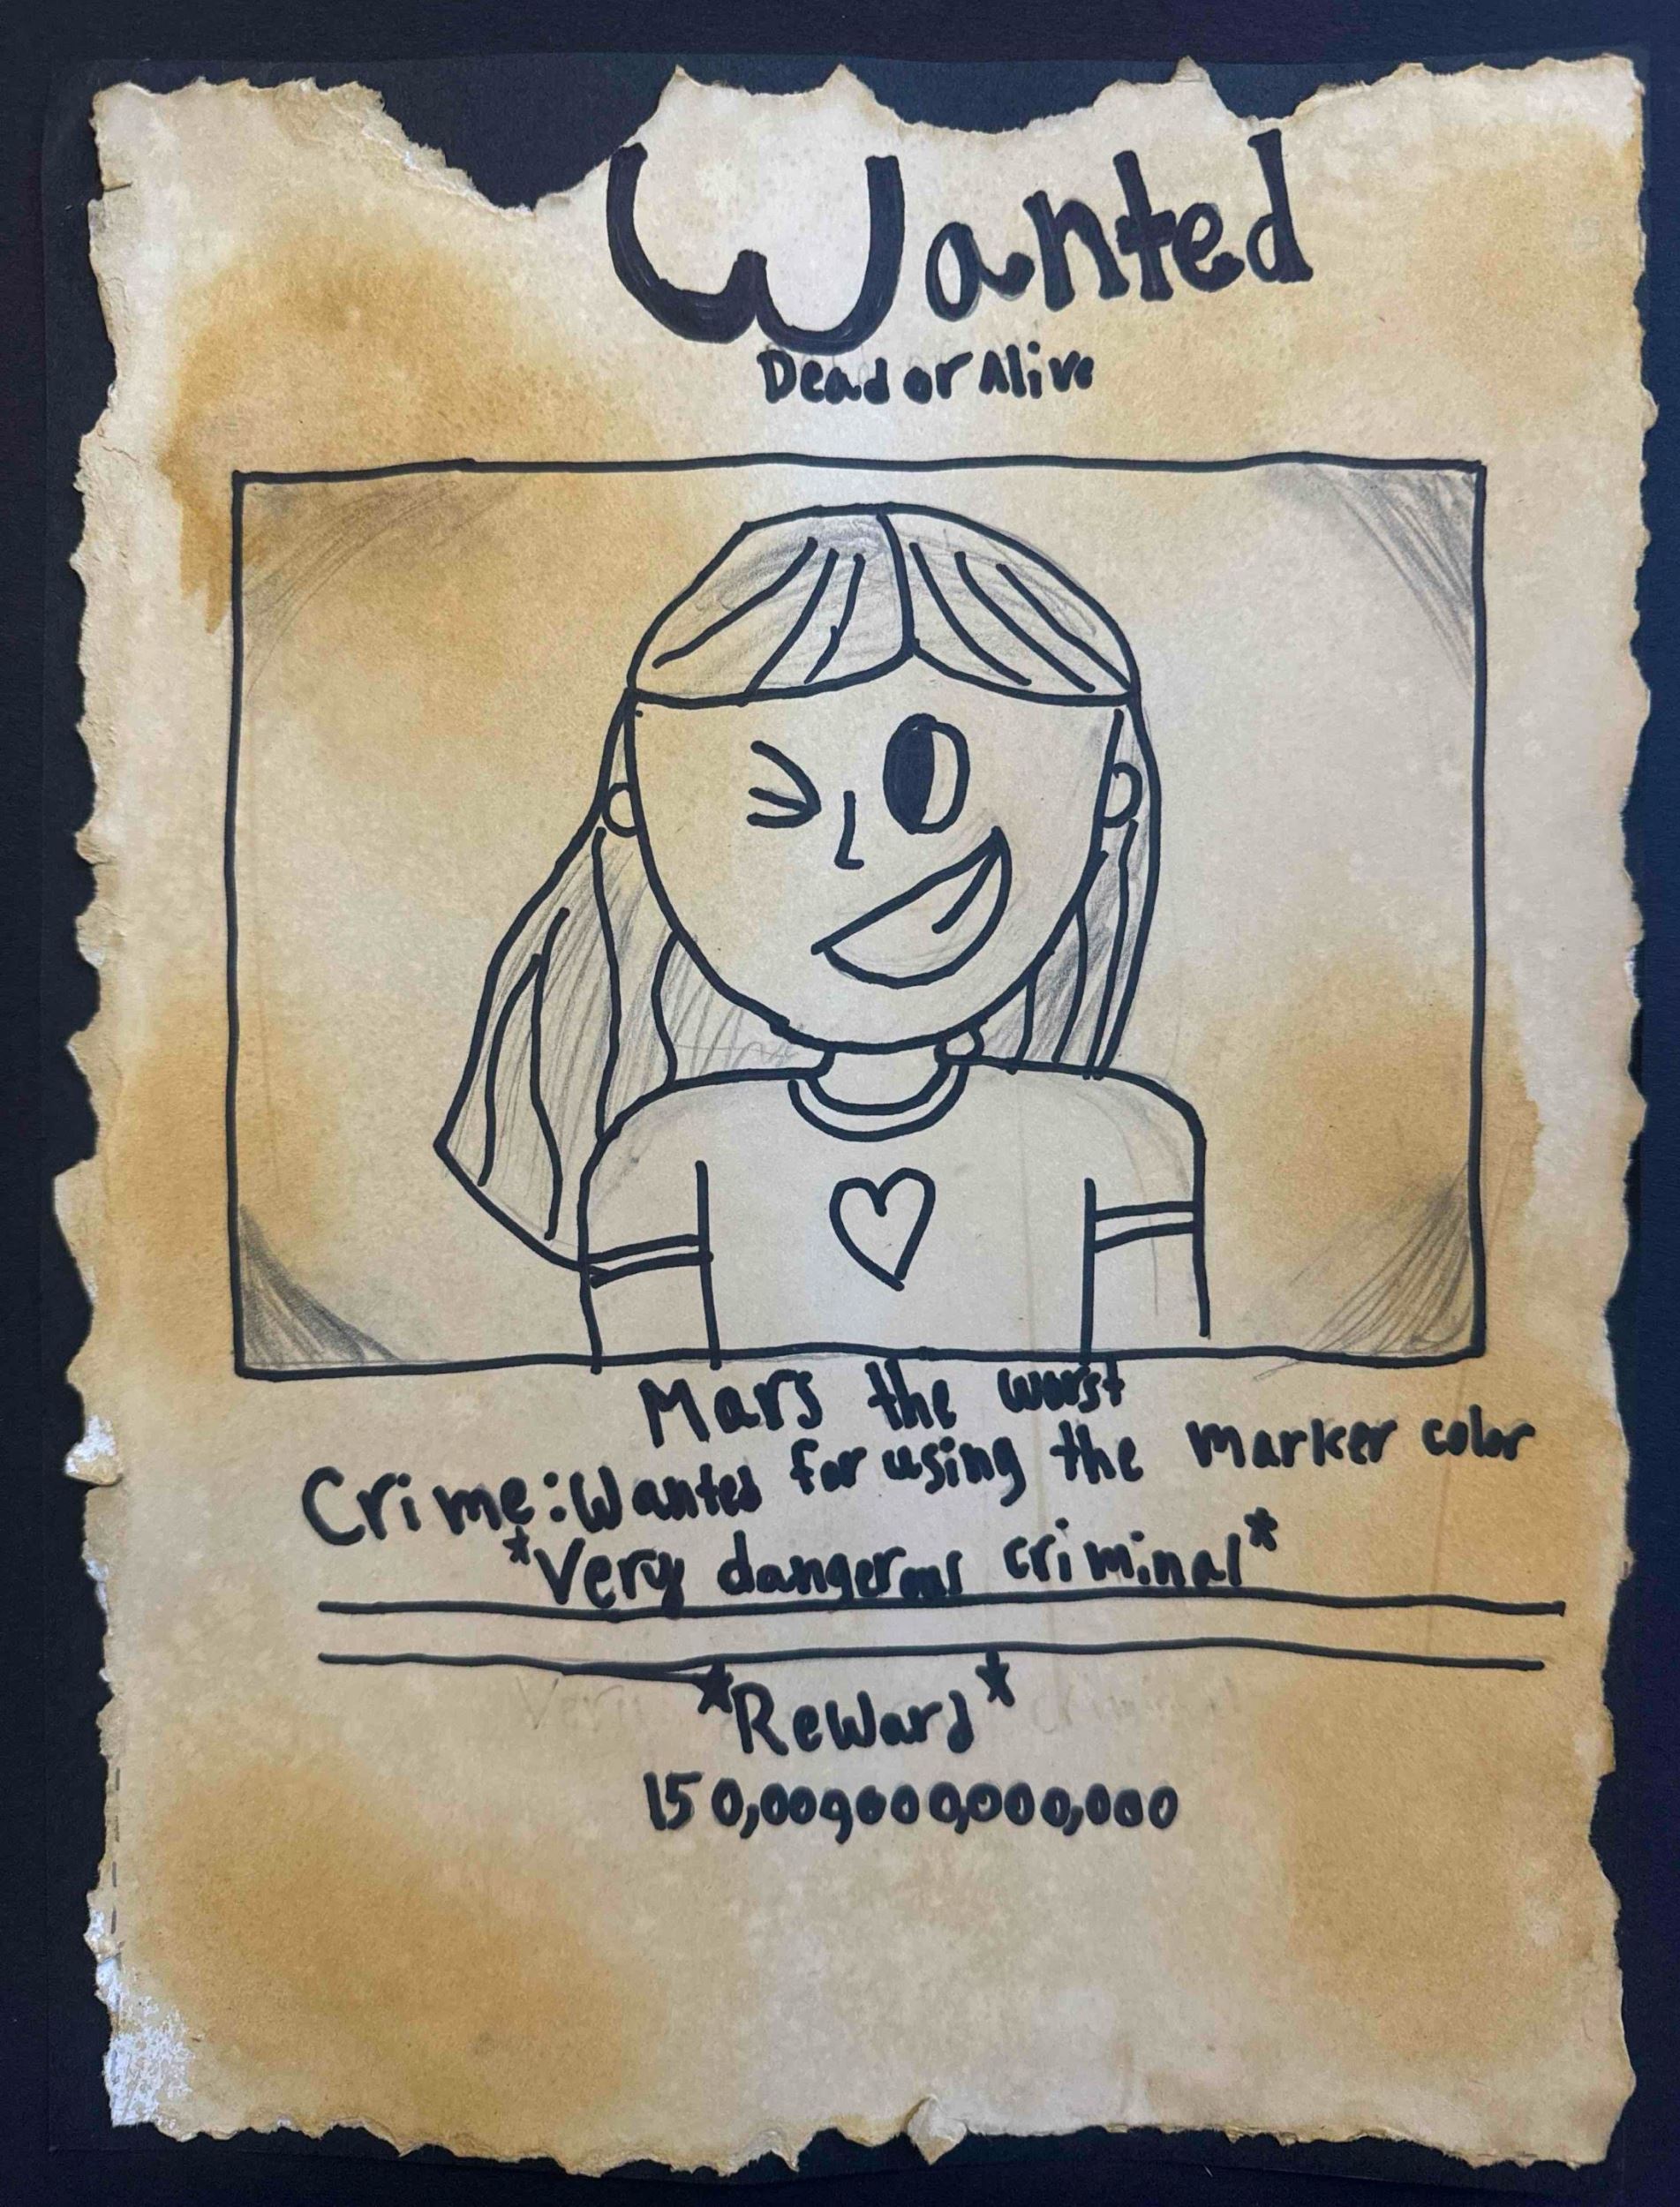 Wanted
Dead or Alive
Mars the worst
Crime: Wanted for using the marker color
*Very dangerous criminal*
*Reward*
150,000,000,000,000